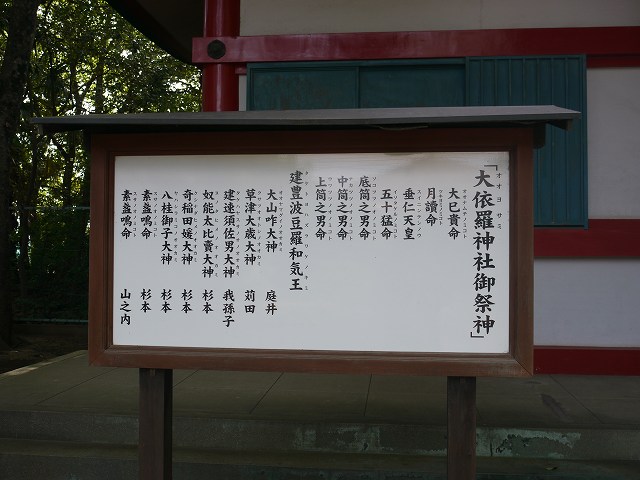 「大依羅神社御祭神」
大已貴命
月讀命
垂仁天皇
五十猛命
底筒之男命
中筒之男命
上筒之男命
建豊波豆羅和気王
大山咋大神 庭井
草津大歳大神 苅田
建速須佐男大神 我孫子
奴能太比賣大神 杉本
奇稲田媛大神 杉本
八柱御子大神 杉本
素盞嗚命 杉本
素盞嗚命 山之内